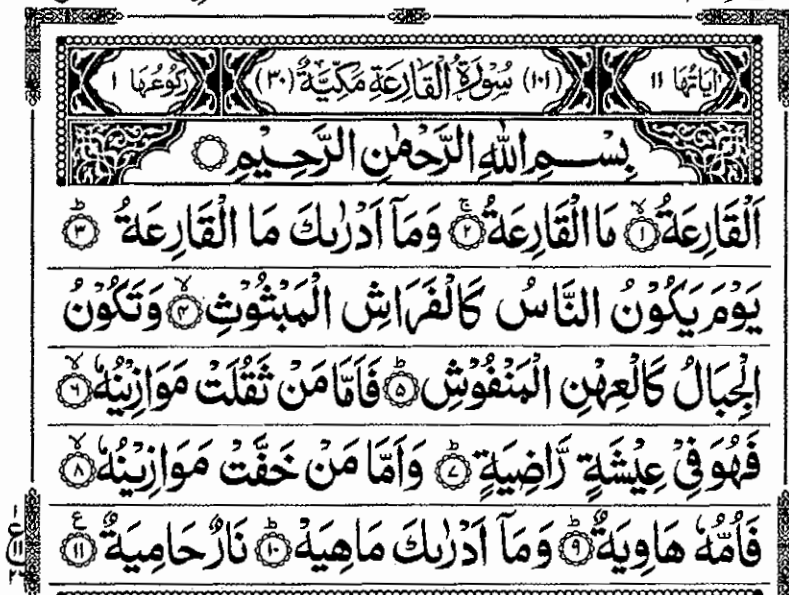 اٰيَاتُهَا ١١ (١٠١) سُوْرَةُ الْقَارِعَةِ مَكِّيَّةٌ (٣٠) رُكُوْعُهَا ١
بِسْمِ اللّٰهِ الرَّحْمٰنِ الرَّحِيْمِ
اَلْقَارِعَةُ ۙ﴿١﴾ مَا الْقَارِعَةُ ۚ﴿٢﴾ وَمَاۤ اَدْرٰىكَ مَا الْقَارِعَةُ ؕ﴿٣﴾
يَوْمَ يَكُوْنُ النَّاسُ كَالْفَرَاشِ الْمَبْثُوْثِ ۙ﴿٤﴾ وَتَكُوْنُ
الْجِبَالُ كَالْعِهْنِ الْمَنْفُوْشِ ؕ﴿٥﴾ فَاَمَّا مَنْ ثَقُلَتْ مَوَازِيْنُهٗ ۙ﴿٦﴾
فَهُوَ فِيْ عِيْشَةٍ رَّاضِيَةٍ ؕ﴿٧﴾ وَاَمَّا مَنْ خَفَّتْ مَوَازِيْنُهٗ ۙ﴿٨﴾
فَاُمُّهٗ هَاوِيَةٌ ؕ﴿٩﴾ وَمَاۤ اَدْرٰىكَ مَاهِيَهْ ؕ﴿١٠﴾ نَارٌ حَامِيَةٌ ﴿١١﴾ ع